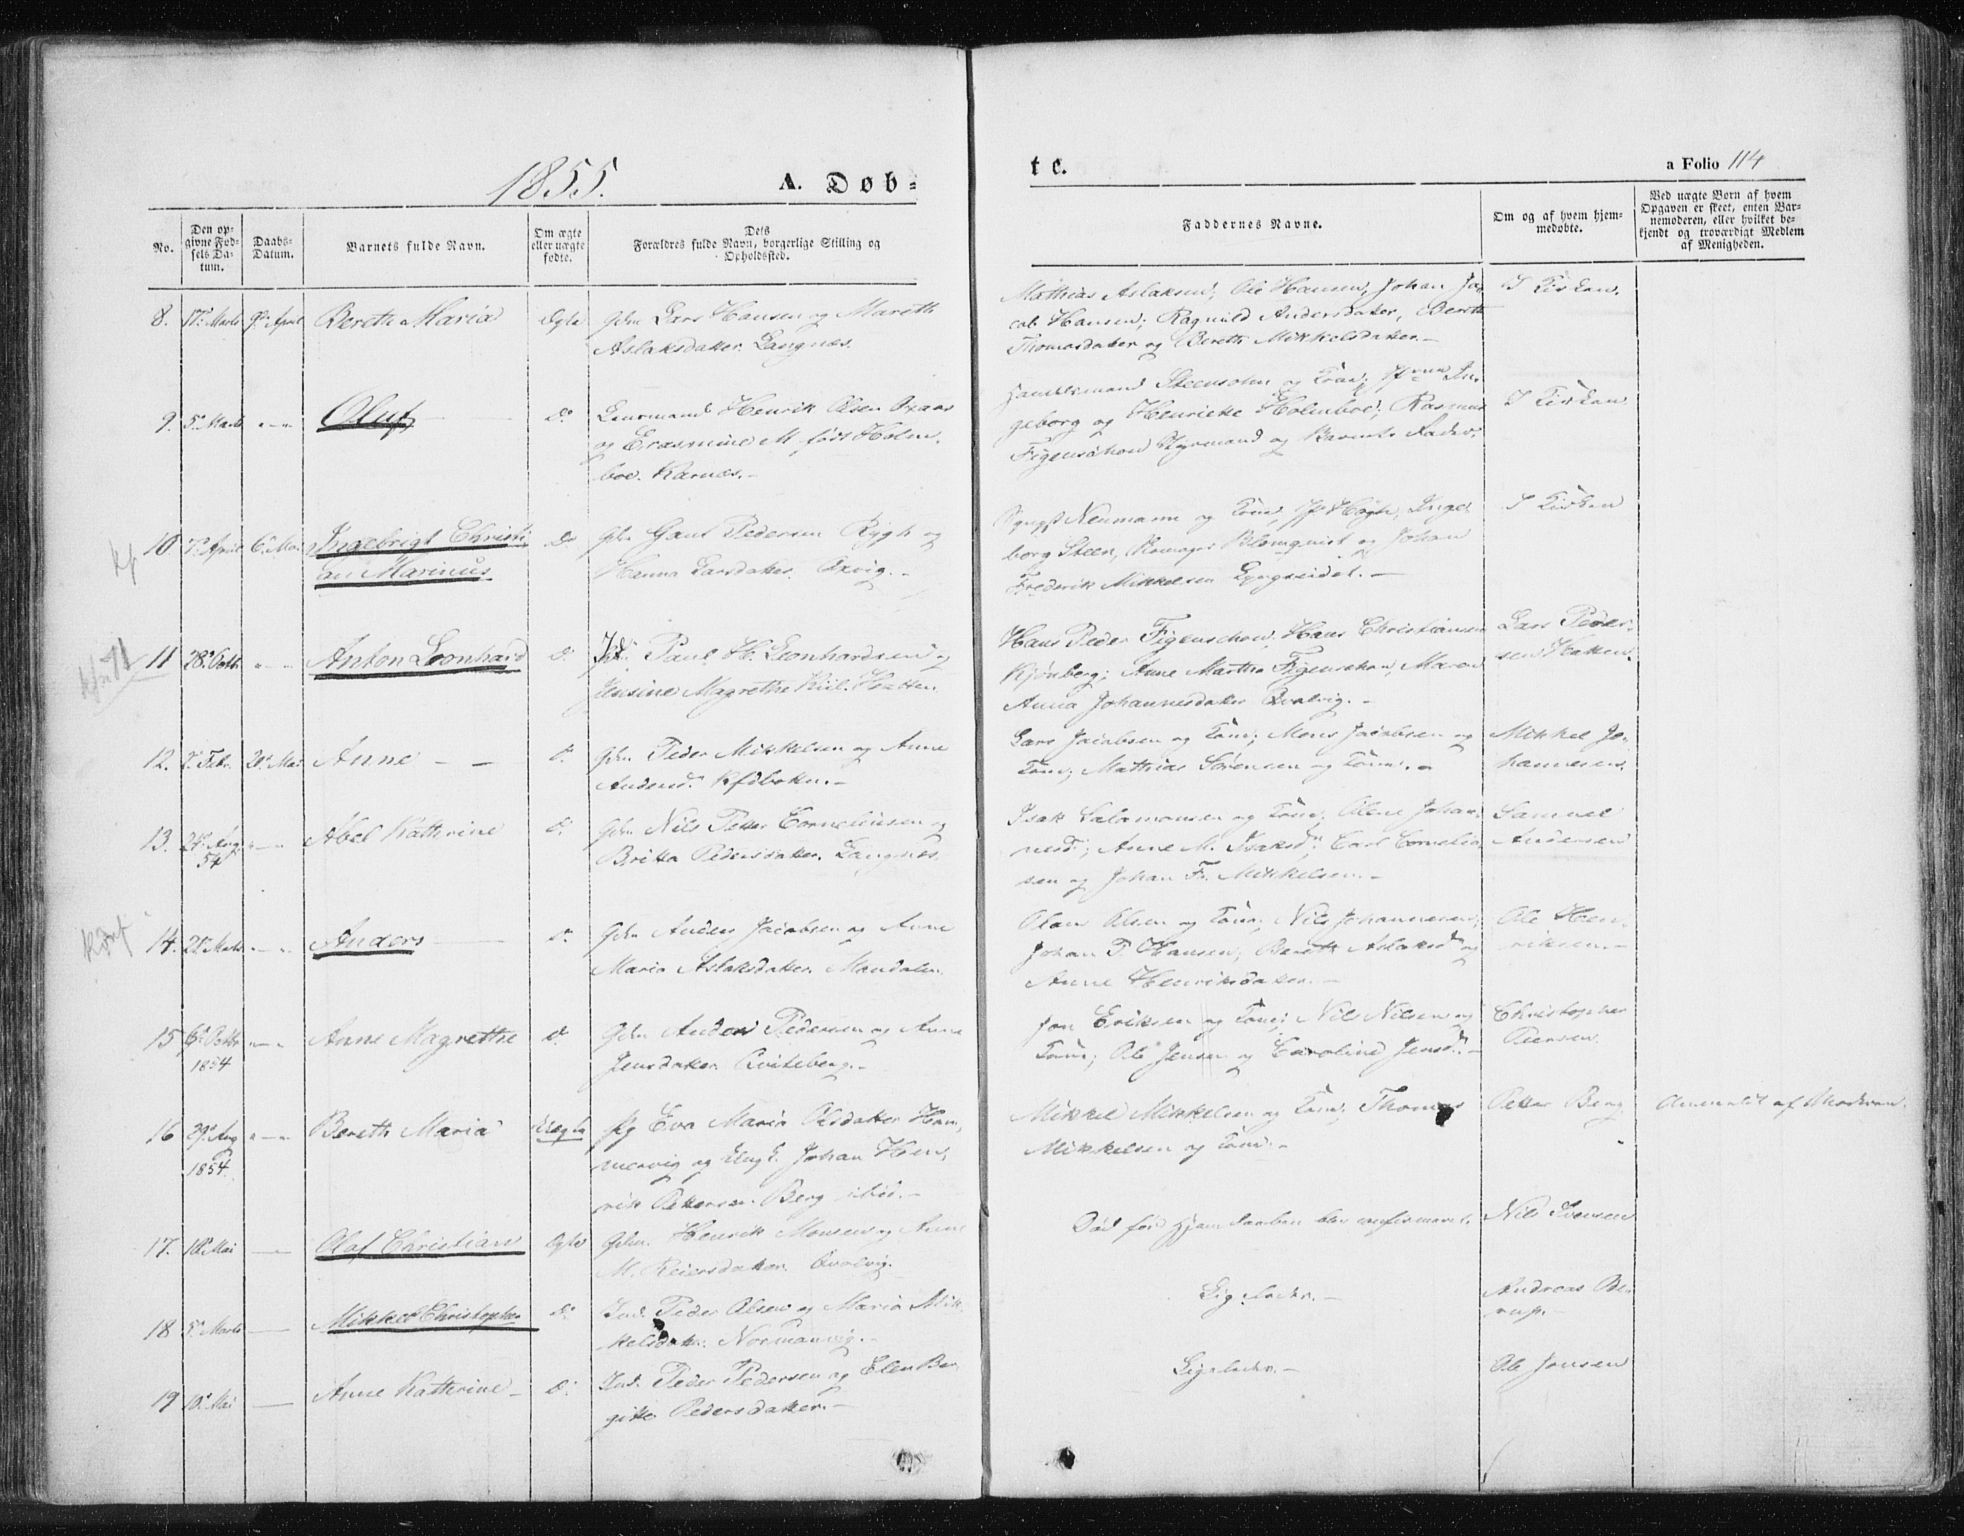 1855.
A. Døb-
te.
a Folio 114
No.
Den op-
givne Fød-
sels Da-
tum.
Daabs-
Datum.
Barnets fulde Navn.
Om ægte
eller uægte
fødte.
Dets
Forældres fulde Navn, borgerlige Stilling og
Opholdssted.
Faddernes Navne.
Om og af hvem hjem-
medøbte.
Ved uægte Børn af hvem
Opgaven er skeet, enten Bar-
nemoderen, eller hvilket be-
kjendt og troværdigt Medlem
af Menigheden.
8. 17de Marts 9de April Bereth Maria Ægte Gdm Lars Hansen og Mareth
Aslaksdatter. Langnæs.
Mathias Aslaksen; Ole Hansen, Johan Ja-
cob Hansen; Ragnild Andersdatter, Bereth
Thomasdatter og Bereth Mikkelsdatter.-
I Kirken.
9. 5te Marts Oluf Do Lensmand Henrik Olsen
og Erasmine M. født Holm-
boe. Karnæs.-
Steensohn og Kone;
geborg og Henrikke Holmboe; Rasmus
Figenschou Styrmand og Barnets Fader.
I Kirken
10 April 6te Mai Ingebrigt Christi-
an Marinus Do Pedersen Rygh og
Hanna Larsdatter.
Neumann og Kone, Høgh, Inge-
borg Steen, Blomqvist og Johan
Frederik Mikkelsen Lyngseidet.-
I Kirken
11 28de Octbr. Anton Leonhard Do Paul H. Leonhardsen og
Jensine Magrethe Kiil. Hatten.
Hans Peder Figenschou, Hans Christiansen
Kjønberg; Anne Martha Figenschou, Maren
Anna Johannesdatter Qvalvig.-
Lars Peder-
sen Hatten.
12. 2de Febr. 20de Mai Anne - - Do Gdm Peder Mikkelsen og Anne
Andersd.
Lars Jacobsen og Kone; Mons Jacobsen og
Kone; Mathias Sørensen og Kone.-
Mikkel Jo-
hannesen.
13. Aug.
54 Abel Kathrine Do Gdm Nils Peter Corneliusen og
Britta Pedersdatter. Langnæs.
Isak Salamonsen og Kone; Olene Johan-
nesd.; Anne M. Isaksd.; Carl Corneliu-
sen og Johan Fr. Mikkelsen.-
Samuel
Andersen
14. Marts Anders Do Gdm Anders Jacobsen og Anne
Maria Aslaksdatter. Mandalen.
Olsen og Kone; Nils Johannesen;
Johan P. Hansen; Bereth Aslaksd. og
Anne Henriksdatter.-
Ole Hen-
riksen.-
15 6te Octbr
1854 Anne Magrethe Do Gdm Anders Pedersen og Anne
Jensdatter. Qviteberg.-
Jon Eriksen og Kone; Nils Nilsen og
Kone; Ole Jensen og Caroline Jensd.-
Christopher
16 29de Aug
1854. Bereth Maria Uægte Pg Eva Maria Olsdatter Ham-
mervig og Ungk. Johan Hen-
rik Berg ibid.-
Mikkel Mikkelsen og Kone; Thomas
Mikkelsen og Kone.-
Berg
Anmeldt af Moderen.
17. 18de Mai Olaf Christian Ægte Gdm. Henrik Monsen og Anne
M. Reiersdatter. Qvalvig.
Død før Hjemmedaaben blev confirmeret. Nils Iversen
18 5te Marts Mikkel Christopher Do Ind. Peder Olsen og Maria Mik-
kelsdatter. Normanvig.-
Ligeledes.- Andreas
19 10de Mai Anne Katherine - Do Ind. Peder Pedersen og Elen Ber-
gitte Pedersdatter.-
Ligeledes.- Ole Jensen